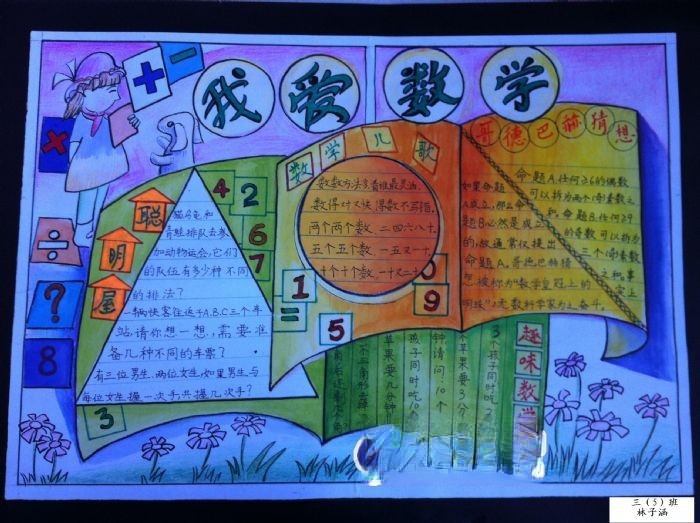 我爱数学
＋－
×
÷
?
8
聪明屋
猫乌龟和
青蛙排队去参
加动物运会，它们
的队伍有多少种不同
的排法？
一辆快客往返于A.B.C三个车
站，请你想一想，需要准
备几种不同的车票？
有三位男生，两位女生，如果男生与
每位女生握一次手共握几次手？
3
4
2
6
7
1
=
5
0
9
数学儿歌
数数方法多，看谁最灵活。
数得对又快，得数不
两个两个数，二四六八十，
五个五个数，一五又一十，
十个十个数，一十又二十。
哥德巴赫猜想
命题A.任何≥6的偶数
如果命题
可以拆为两个奇素数之
A成立，那么命
和.命题B.任何≥9
题B必然是成立
的奇数可以拆为
的，故通常仅提出
三个奇素数
命题A。哥德巴赫猜
之和。事
想被称为“数学皇冠上的
实上
明珠”，无数科学家为之奋斗。
趣味数学
3个孩子同时吃
苹果要3分
钟，请问，10个
孩子同时吃10
苹果要几分钟
三（5）班
林子涵